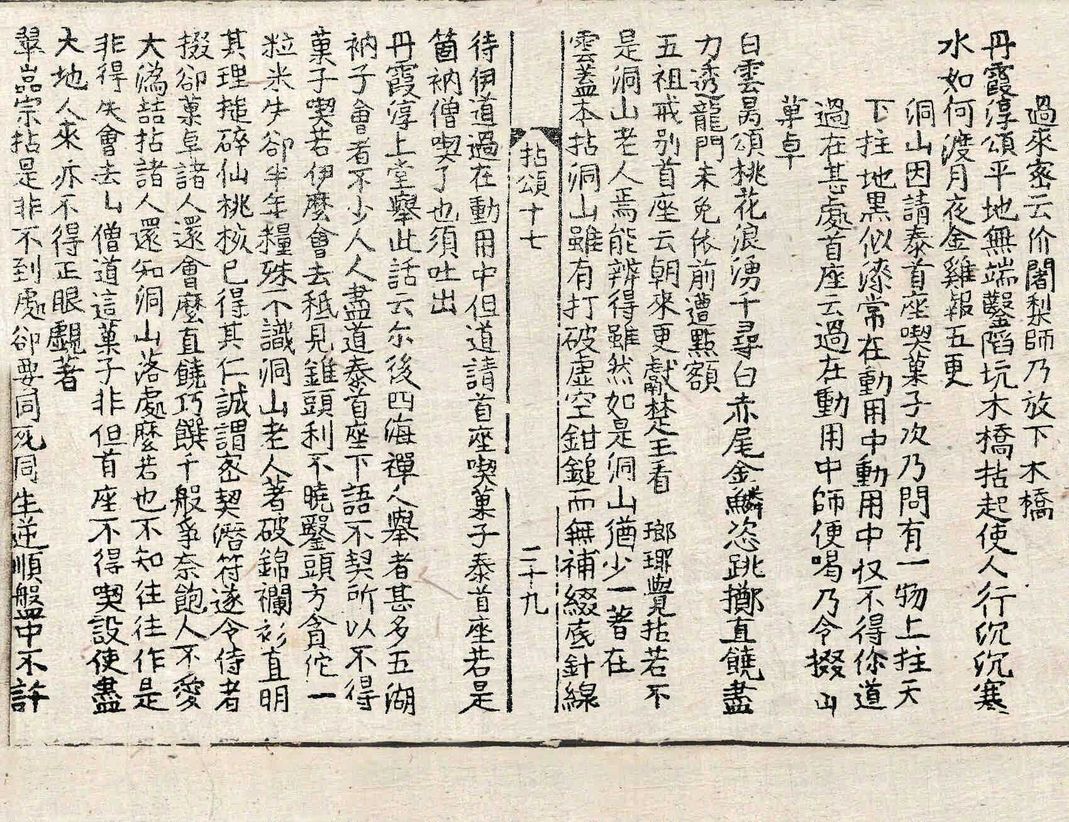 過來密云价闍梨師乃放下木橋
丹霞淳頌平地無端鑿陷坑木橋拈起使人行沉沉寒
水如何渡月夜金雞報五更
洞山因請泰首座喫菓子次乃問有一物上拄天
下拄地黑似漆常在動用中動用中収不得你道
過在甚處首座云過在動用中師便喝乃令掇
菓卓
白雲昺頌桃花浪湧千尋白赤尾金鱗恣跳擲直饒盡
力透龍門未免依前遭點額
五祖戒別首座云朝來更獻楚王看 瑯瑘覺拈若不
是洞山老人焉能辨得雖然如是洞山猶少一著在
雲蓋本拈洞山雖有打破虛空鉗鎚而無補綴底針線
拈頌十七 二十九
待伊道過在動用中但道請首座喫菓子泰首座若是
箇衲僧喫了也須吐出
丹霞淳上堂舉此話云尔後四海禪人舉者甚多五湖
衲子會者不少人人盡道泰首座下語不契所以不得
菓子喫若伊麽會去秪見錐頭利不曉鑿頭方貪佗一
粒米失卻半年糧殊不識洞山老人著破錦襴衫直明
其理搥碎仙桃核已得其仁誠謂密契潛符遂令侍者
掇卻菓卓諸人還會麽直饒巧饌千般爭奈飽人不愛
大潙喆拈諸人還知洞山落處麽若也不知往往作是
非得失會去山僧道這菓子非但首座不得喫設使盡
大地人來亦不得正眼覷著
翠嵓宗拈是非不到處卻要同死同生逆順盤中不許